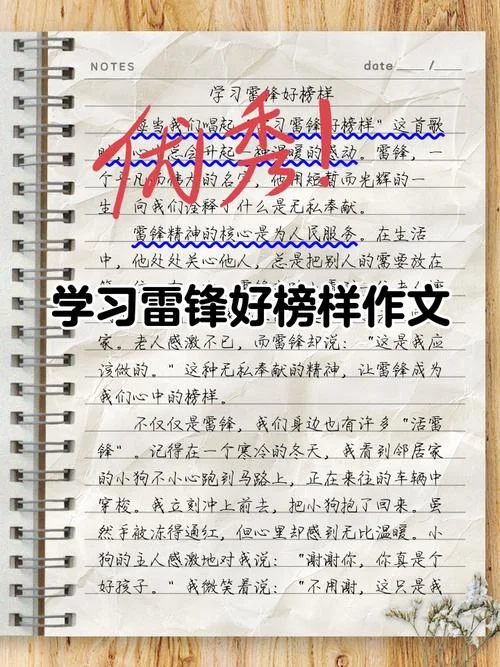 NOTES
date ___ / ___
学习雷锋好榜样
每当我们唱起"学习雷锋好榜样"这首歌
总会升起一种温暖的感动。雷锋,一
个平凡而伟大的名字,他用短暂而光辉的一
生,向我们诠释了什么是无私奉献。
优秀!
雷锋精神的核心是为人民服务。在生活
中,他处处关心他人,总是把别人的需要放在
学习雷锋好榜样作文
家。老人感激不已,而雷锋却说:"这是我应
该做的。"这种无私奉献的精神,让雷锋成为
我们心中的榜样。
不仅仅是雷锋,我们身边也有许多"活雷
锋"。记得在一个寒冷的冬天,我看到邻居家
的小狗不小心跑到马路上,正在来往的车辆中
穿梭。我立刻冲上前去,把小狗抱了回来。虽
然手被冻得通红,但心里却感到无比温暖。小
狗的主人感激地对我说:"谢谢你,你真是个
好孩子。"我微笑着说:"不用谢,这只是我